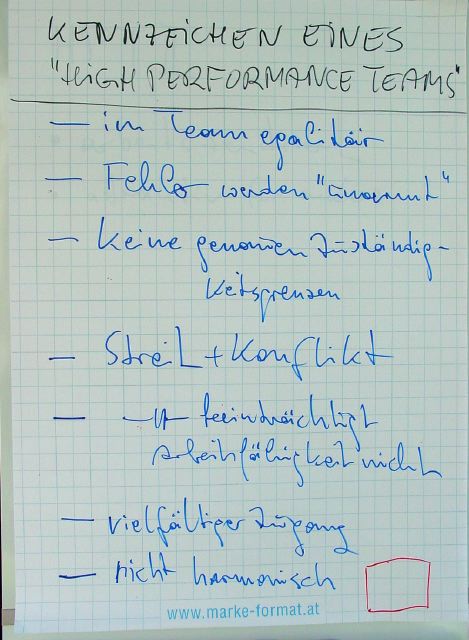 KENNZEICHEN EINES
"HIGH PERFORMANCE TEAMS"
— im Team egalitär
— Fehler werden "umarmt"
— Keine genauen Zuständig-
keitsgrenzen
— Streit + Konflikt
— —"— beeinträchtigt
Arbeitsfähigkeit nicht
— vielfältiger Zugang
— nicht harmonisch
www.marke-format.at